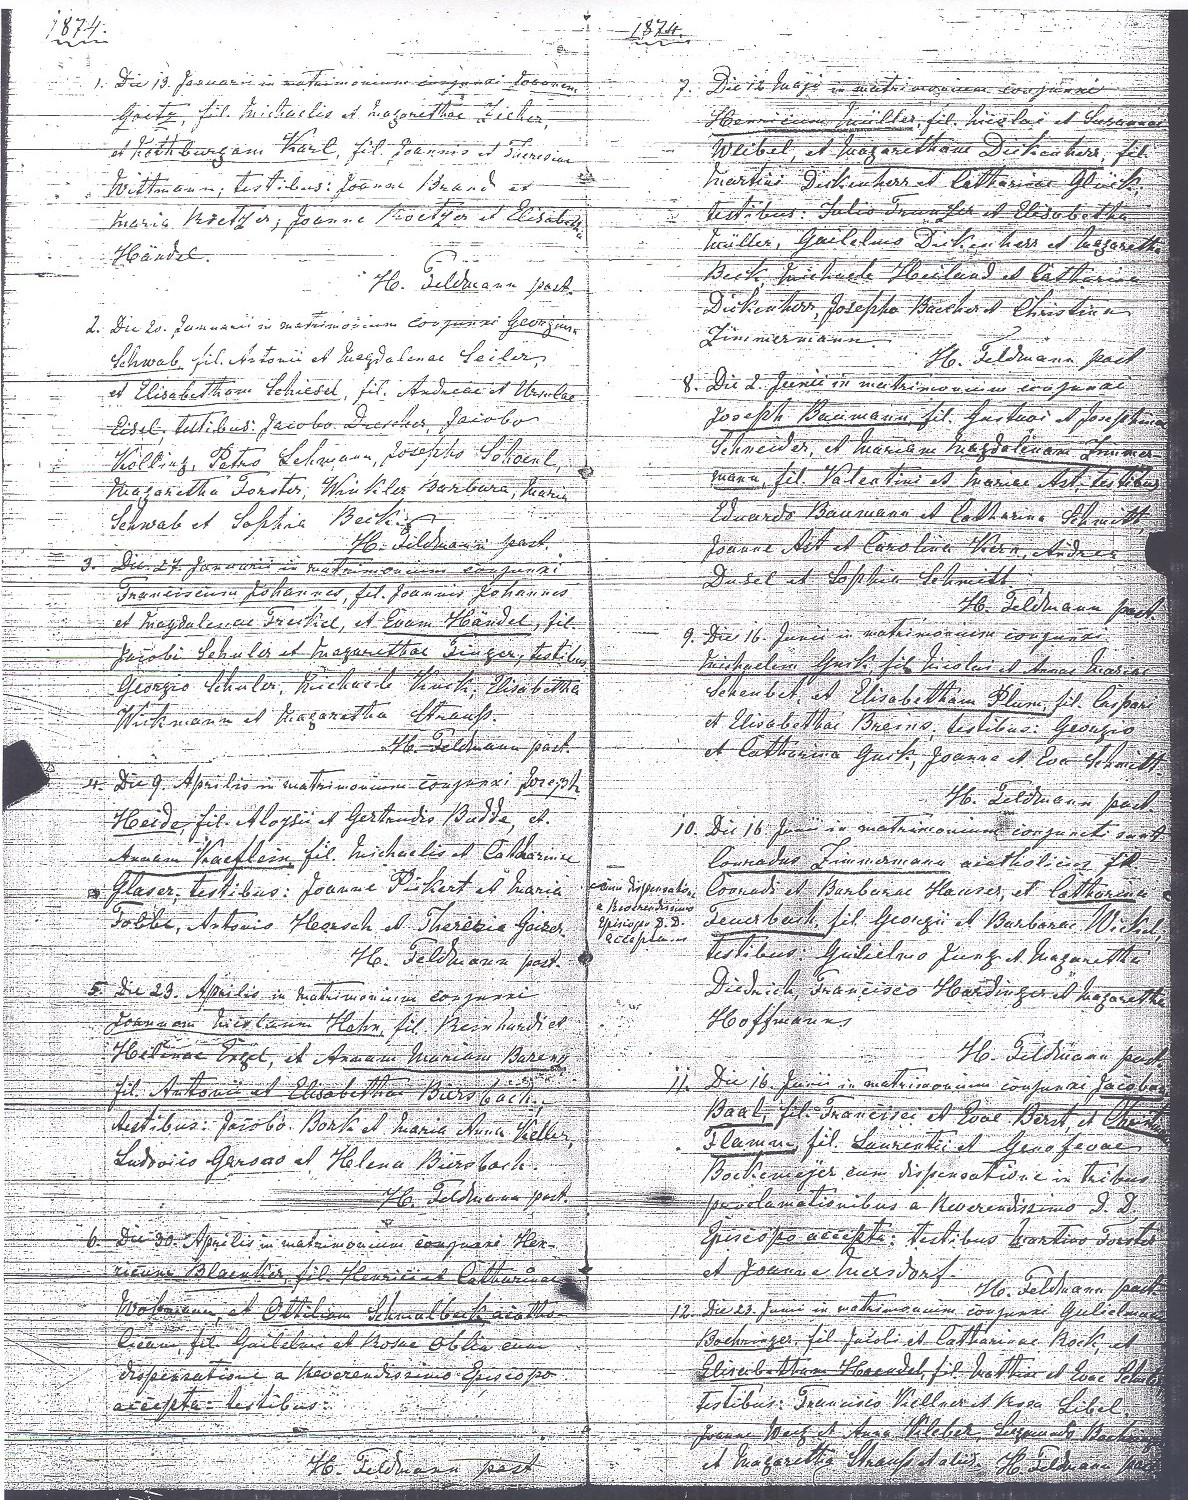 1874.
1. Die 13. Januarii in matrimonium conjunxi Joannem
Goetz, fil. Michaelis et Margarethae Zieher,
et Nothburgam Karl, fil. Joannis et Theresiae
Wittmann; testibus: Joanne Brand et
Maria Koetzer, Joanne Koetzer et Elisabetha
Händel.
H. Feldmann past.
2. Die 20. Januarii in matrimonium conjunxi Georgium
Schwab, fil. Antonii et Magdalenae Seiler,
et Elisabetham Schiesel, fil. Andreae et Ursulae
Eisel, testibus: Jacobo Drescher, Jacobo
Kolling, Petro Lehmann, Josepho Schoenl,
Margaretha Forster, Winkler Barbara, Maria
Schwab et Sophia Beck.
H. Feldmann past.
3. Die 27. Januarii in matrimonium conjunxi
Franciscum Johannes, fil. Joannis Johannes
et Magdalenae Freckel, et Evam Händel, fil.
Jacobi Schuler et Margarethae Finger, testibus
Georgio Schuler, Michaele Kuck, Elisabetha
Wickmann et Margaretha Strauss.
H. Feldmann past.
4. Die 9. Aprilis in matrimonium conjunxi Joseph
Heide, fil. Aloysii et Gertrudis Budde, et
Annam Kaeflein, fil. Michaelis et Catharinae
Glaser, testibus: Joanne Pickert et Maria
Tobbe, Antonio Hoersch et Therezia Goizer.
H. Feldmann past.
5. Die 23. Aprilis in matrimonium conjunxi
Joannem Nicolaum Hahn, fil. Reinhardi et
Helenae Engel, et Annam Mariam Barens
fil. Antonii et Elisabethae Biersbach,
testibus: Jacobo Bork et Maria Anna Keller,
Ludovico Gersao et Helena Biersbach.
H. Feldmann past.
6. Die 30. Aprilis in matrimonium conjunxi Hen-
ricum Blaenker, fil. Henrici et Catharinae
et Ottiliam Schmalbeck acatho-
licam, fil. Guilelmi et Rosae Oblia cum
dispensatione a Reverendissimo Episcopo
accepta: testibus:
H. Feldmann past
1874.
7. Die 12 Maji in matrimonium conjunxi
Henricum Müller, fil. Nicolai et Susannae
Weibel, et Margaretham Dickenherr, fil.
Martini Dickenherr et Catharinae Glück.
testibus: Julio Franzfer et Elisabetha
Müller, Guilelmo Dickenherr et Margaretha
Beck, Michaele Heiland et Catharina
Dickenherr, Josepho Bucher et Christina
Zimmermann.
H. Feldmann past
8. Die 2. Junii in matrimonium conjunxi
Joseph Baumann, fil. Gustavi et Josephinae
Schneider, et Mariam Magdalenam Zimmer-
mann, fil. Valentini et Mariae Ast, testibus
Eduardo Baumann et Catharina Schmitt,
Joanne Ast et Carolina Kern, Andrea
Dusel et Sophia Schmitt.
H. Feldmann past.
9. Die 16. Junii in matrimonium conjunxi
Michaelem Guck fil. Nicolai et Annae Mariae
Scheubet, et Elisabetham Plum, fil. Caspari
et Elisabethae Breins, testibus: Georgio
et Catharina Guck, Joanne et Eva Schmitt.
H. Feldmann past.
10. Die 16. Junii in matrimonium conjuncti sunt
Conradus Zimmermann acatholicus fil
Conradi et Barbarae Hauser, et Catharina
Feuerbach, fil. Georgii et Barbarae Wickel,
testibus: Guilielmo Jung et Margaretha
Diedrich, Francisco Hardinger et Margaretha
Hoffmanns
cum dispensatione
a Reverendissimo
Episcopo D.D.
accepta
H. Feldmann past.
11. Die 16. Junii in matrimonium conjunxi Jacobum
Baal, fil. Francisci et Evae Berst, et
Flamm, fil. Laurentii et Genofevae
Bockemeyer cum dispensatione in tribus
proclamationibus a Reverendissimo D. D.
Episcopo accepta: testibus Martino Forster
et Joanne Mersdorf.
H. Feldmann past
12. Die 23. Junii in matrimonium conjunxi Gulielmum
Boehringer fil. Jacobi et Catharinae Rock, et
Elisabetham Haendel, fil. Matthiae et Evae
testibus: Francisco Kellner et Rosa Libel.
Joanne Weiz et Anna Kleber,
et Margaretha Strauss et aliis. H. Feldmann past